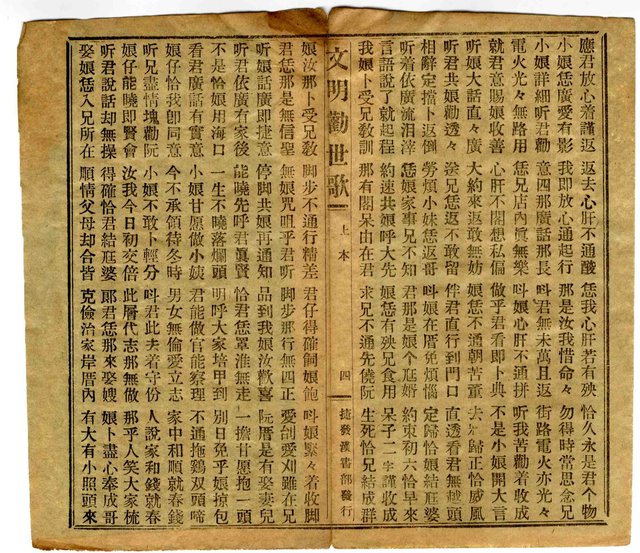 應君放心着謹返 返去心肝不通酸 恁我心肝若有殃 恰久永是君个物
小娘恁廣愛有影 我即放心通起行 那是汝我惜命々 勿得時當思念兄
小娘詳細听君勸 意四那廣話那長 呌君無未萬且返 街路電火亦光々
電火光々無路用 恁兄店內眞無樂 呌娘心肝不通拼 听我苦勸着收成
就君意賜娘收善 心肝不閣想私偏 做乎君看即卜典 不是小娘開大言
听娘大話直々廣 大約來返敢無妨 娘恁不通朝苦童 去歸正恰威風
听君共娘勸透々 兄恁返不敢留 伴君直行到門口 直透看君無越頭
相辭定擋卜返倒 勞煩小妹恁返哥 呌娘在厝免煩惱 定歸恰娘結尪婆
听着依廣流泪滓 恁娘家事兄不知 君那是娘个尪婿 約束初六恰早來
言語說了就起程 約速共娘呼大先 娘恁有殃兄食用 呆子二字謹收成
我娘卜受兄敎訓 那有閣呆由在君 求兄不通先僥阮 生死恰兄結成群
文明勸世歌 上本 四 捷發漢書部發行
娘汝那卜受兄敎 脚步不通行精差 君仔得確飼娘飽 呌娘緊々着收脚
君恁那是無信聖 無娘咒咀乎君听 脚步那行無四正 愛刣愛刈雖在兄
听娘話廣即捷意 停脚共娘再通知 品到我娘汝歡喜 阮厝是有娶妻兒
听君依廣有家後 能曉先呼君眞賢 恰君恁罩淮無走 一擔甘愿抱一頭
不是恰娘用海口 一生不曉落爛頭 明呼大家培甲到 別日免乎娘掠包
看君廣話有實意 小娘甘愿做小姨 君能做官能察理 不通拖鷄双頭啼
娘仔恰我卽同意 今不承領待冬時 男女無倫愛立志 家中和順就春錢
听兄盡情塊勸阮 小娘不敢卜輕分 呌君此去着守份 人說家和錢就春
娘仔能曉即賢會 汝我今日初交倍 此層代志那無做 那乎人笑大家梳
听君說話却無操 得確恰君結尪婆 郞君恁那來娶嫂 娘卜盡心奉成哥
娶娘恁入兄所在 順情父母却合皆 克儉治家岸厝內 有大有小照頭來